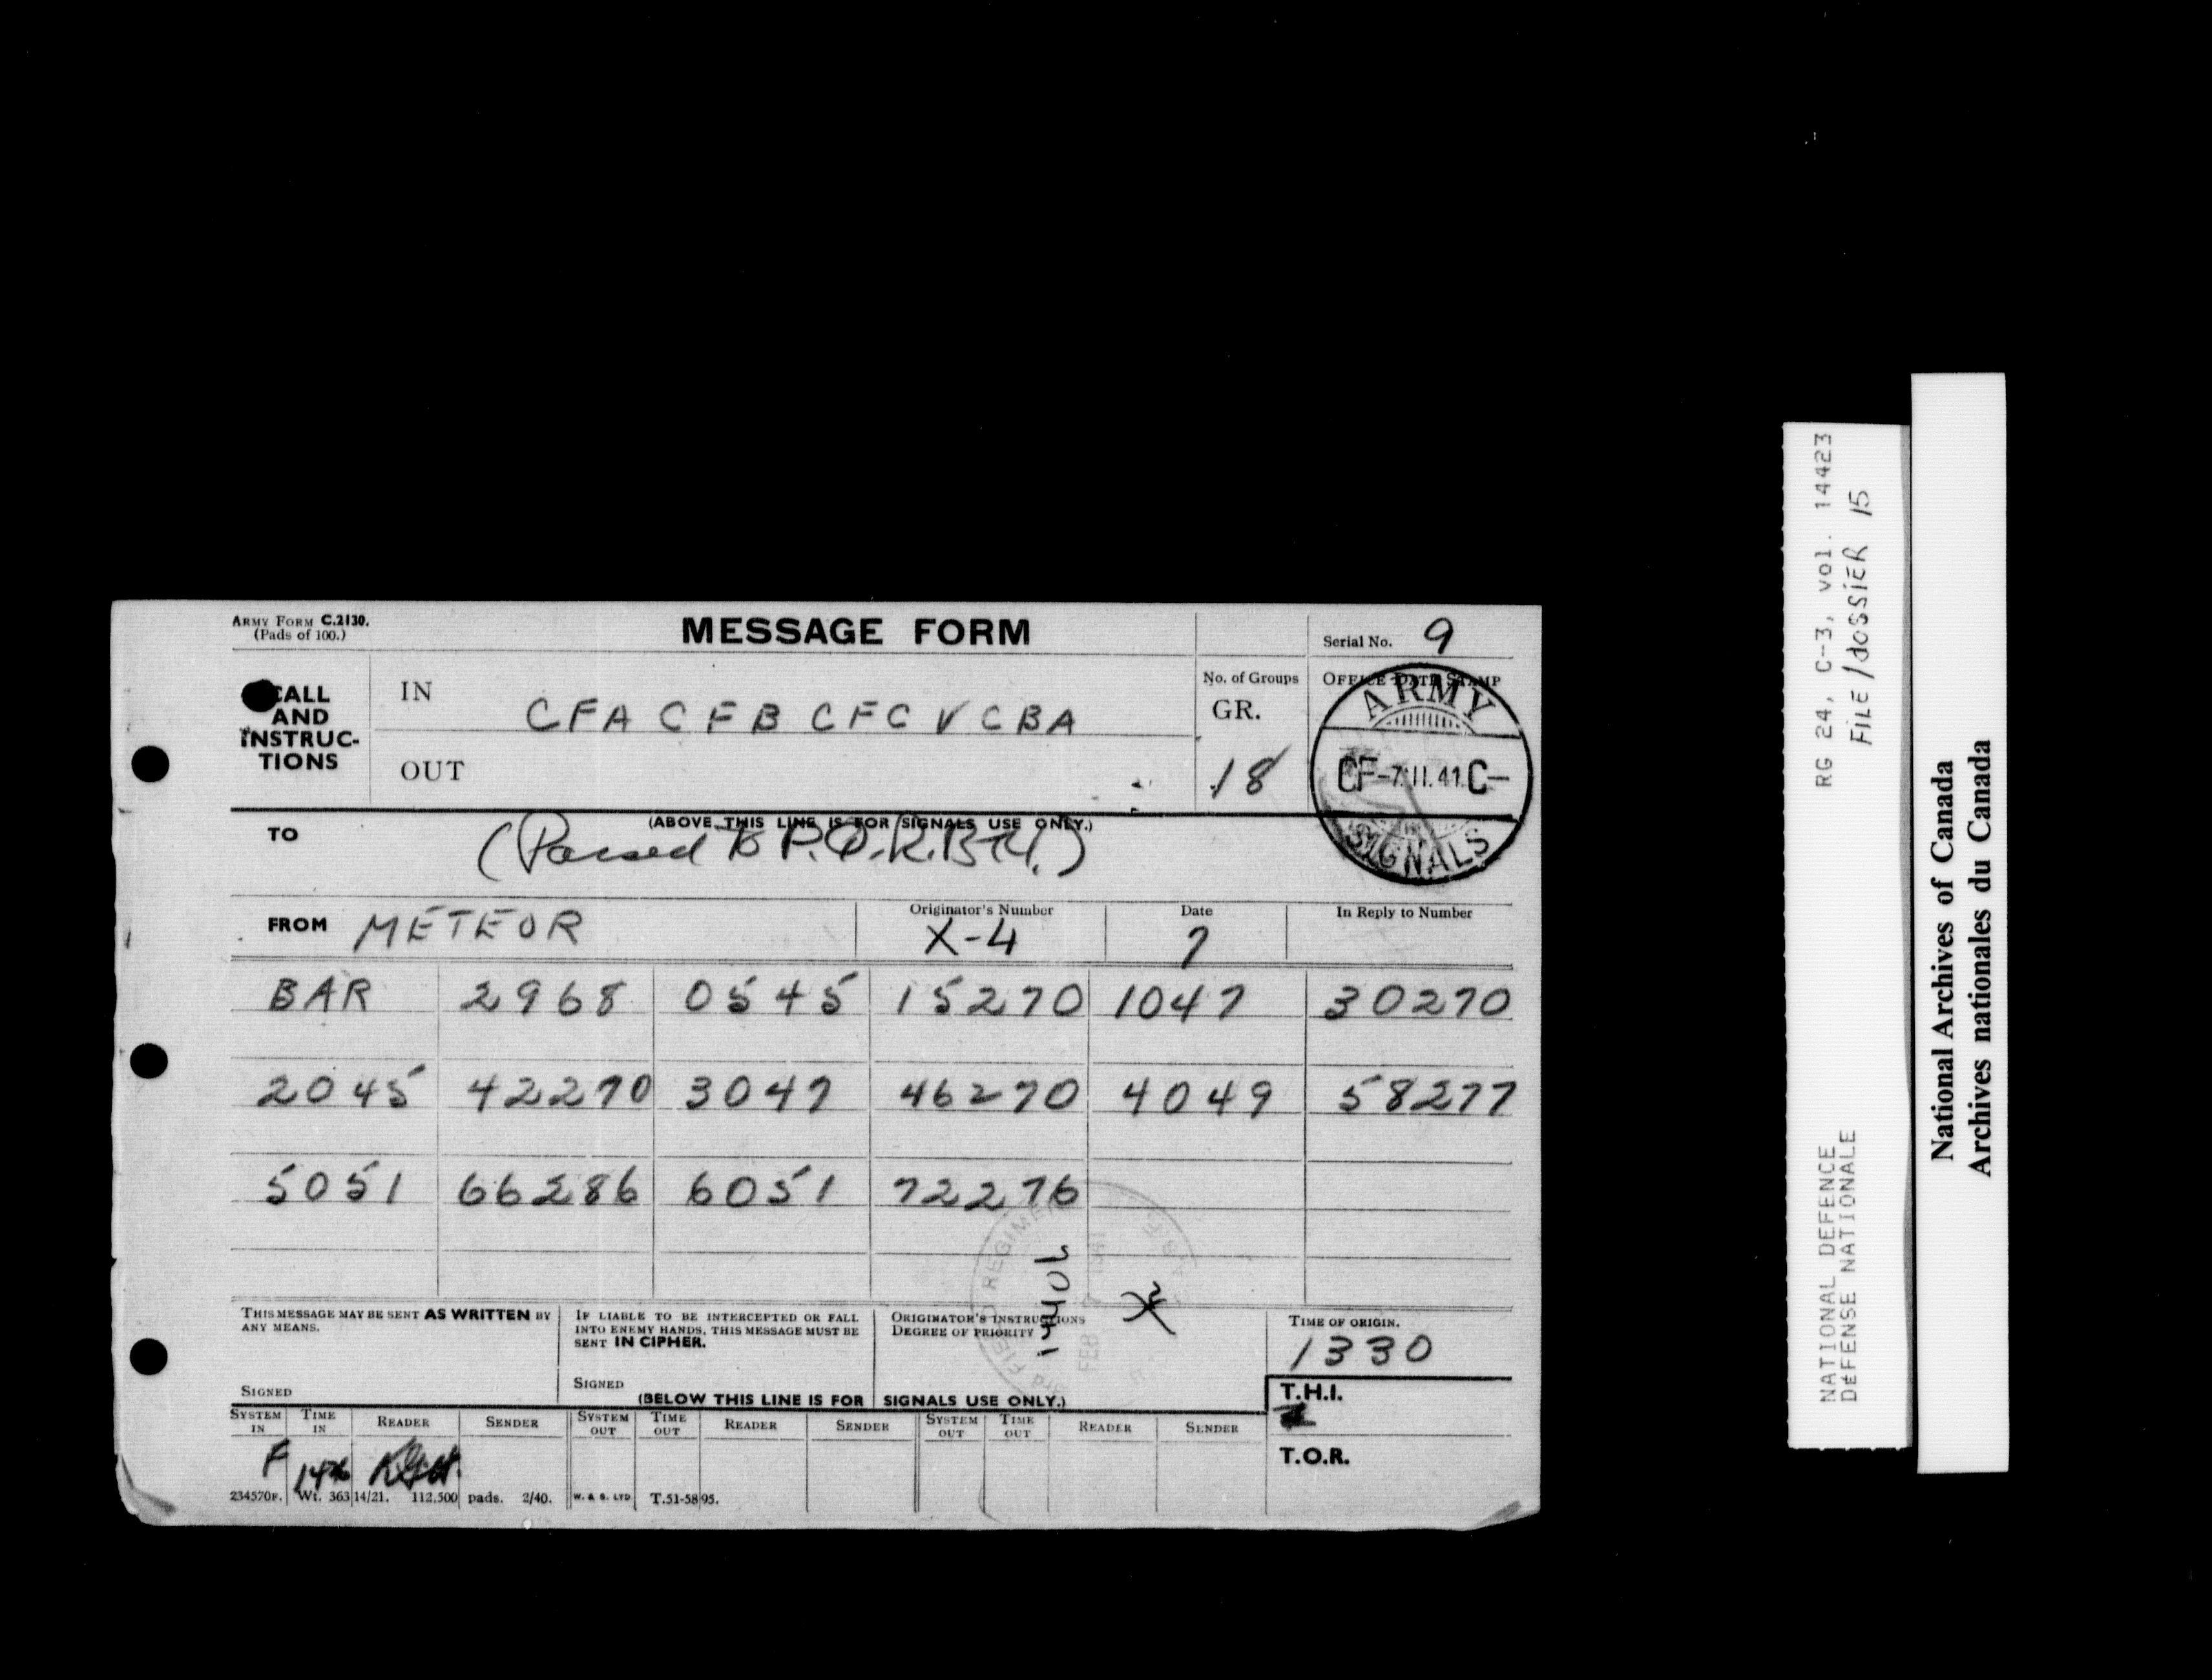 ARMY FORM C.2130.
(Pads of 100.)
MESSAGE FORM
Serial No. 9
CALL AND INSTRUC- TIONS
IN CFA CFB CFC V CBA
OUT
No. of Groups
GR.
18
OFFICE DATE STAMP
ARMY
CF-7.II.41.C-
SIGNALS
(ABOVE THIS LINE IS FOR SIGNALS USE ONLY.)
TO (Passed to P.Q.R. Bty.)
FROM METEOR
Originator's Number X-4
Date 7
In Reply to Number
BAR 2968 0545 15270 1047 30270
2045 42270 3047 46270 4049 58277
5051 66286 6051 72276
FIELD REGIMENT
FEB 7 1941
1440h
THIS MESSAGE MAY BE SENT AS WRITTEN BY
ANY MEANS.
SIGNED
IF LIABLE TO BE INTERCEPTED OR FALL
INTO ENEMY HANDS, THIS MESSAGE MUST BE
SENT IN CIPHER.
SIGNED
ORIGINATOR'S INSTRUCTIONS
DEGREE OF PRIORITY
TIME OF ORIGIN.
1330
T.H.I.
T.O.R.
(BELOW THIS LINE IS FOR SIGNALS USE ONLY.)
SYSTEM IN TIME IN READER SENDER SYSTEM OUT TIME OUT READER SENDER SYSTEM OUT TIME OUT READER SENDER
F
234570F. Wt. 36314/21. 112,500 pads. 2/40. W. & S. LTD T.51-5895.
RG 24, C-3, vol. 14423
FILE/dOSSiER 15
NATIONAL DEFENCE
DÉFENSE NATIONALE
National Archives of Canada
Archives nationales du Canada